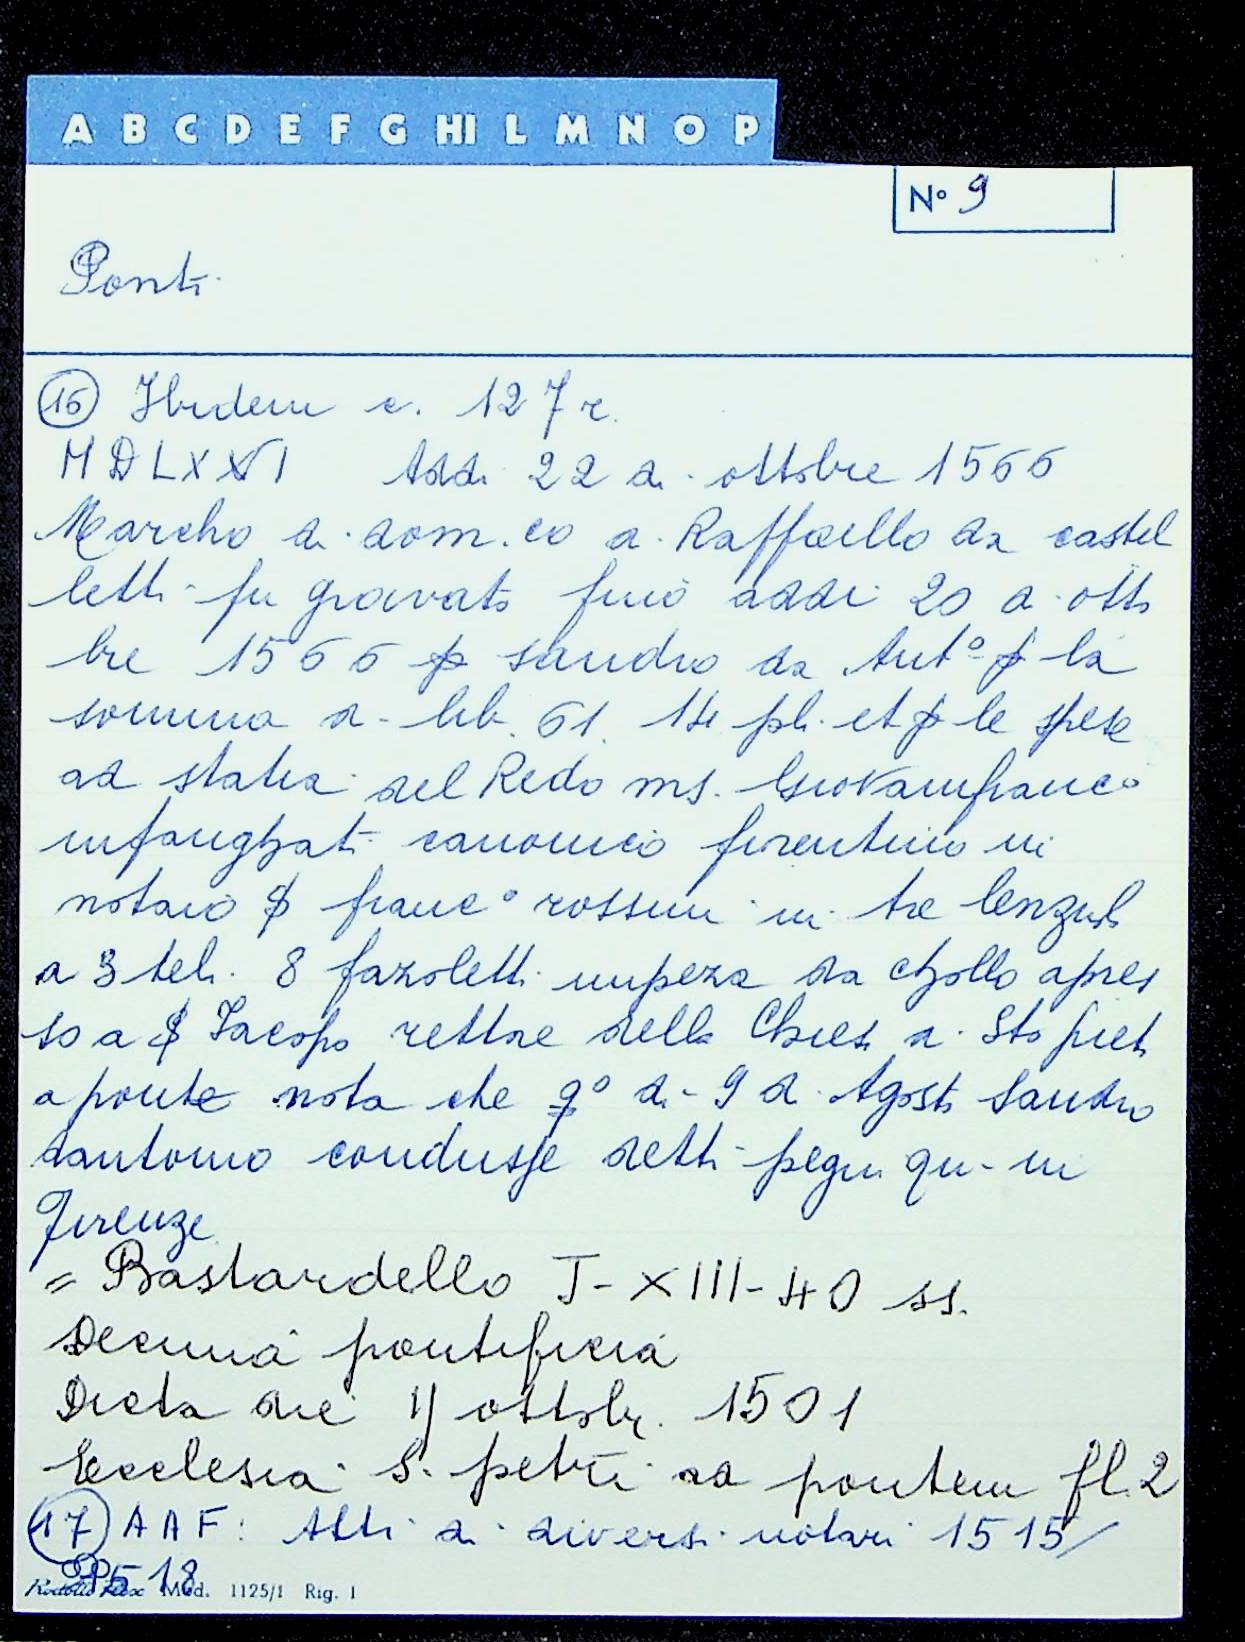 A B C D E F G HI L M N O P
N° 9
Ponti
16 Ibidem c. 127 r.
MDLXXVI Addi 22 di ottobre 1566
Marcho di dom.co di Raffaello da castel
letti fu gravato fino addi 20 di otto
bre 1566 p sandro da Ant° p la
somma di lib. 61. 14 pli. et p le spese
ad statia del Redo ms. Giovamfranco
infanghati canonico fiorentino in
notaio S franc° rossini in tre lenzuoli
a 3 teli. 8 fazoletti in peza da chollo apres
so a S Iacopo rettore della Chiesa di Sto pieto
a ponte nota che q° di 9 di Agosto Sandro
dantonio condusse detti pegni qui in
Firenze
= Bastardello I-XIII-40 ss.
Decima pontificia
Dicta die 11 ottobr. 1501
Ecclesia S. petri ad pontem fl. 2
17 AAF: Atti di diversi notari 1515/
1518
Mod. 1125/1 Rig. 1